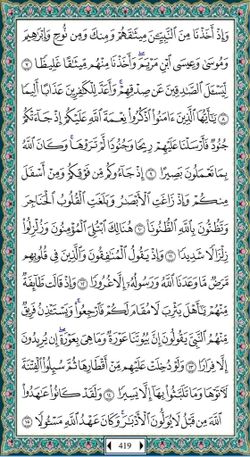 وَإِذْ أَخَذْنَا مِنَ ٱلنَّبِيِّـۧنَ مِيثَـٰقَهُمْ وَمِنكَ وَمِن نُّوحٍ وَإِبْرَٰهِيمَ
وَمُوسَىٰ وَعِيسَى ٱبْنِ مَرْيَمَ ۖ وَأَخَذْنَا مِنْهُم مِّيثَـٰقًا غَلِيظًا ٧
لِّيَسْـَٔلَ ٱلصَّـٰدِقِينَ عَن صِدْقِهِمْ ۚ وَأَعَدَّ لِلْكَـٰفِرِينَ عَذَابًا أَلِيمًا
٨ يَـٰٓأَيُّهَا ٱلَّذِينَ ءَامَنُوا۟ ٱذْكُرُوا۟ نِعْمَةَ ٱللَّهِ عَلَيْكُمْ إِذْ جَآءَتْكُمْ
جُنُودٌ فَأَرْسَلْنَا عَلَيْهِمْ رِيحًا وَجُنُودًا لَّمْ تَرَوْهَا ۚ وَكَانَ ٱللَّهُ
بِمَا تَعْمَلُونَ بَصِيرًا ٩ إِذْ جَآءُوكُم مِّن فَوْقِكُمْ وَمِنْ أَسْفَلَ
مِنكُمْ وَإِذْ زَاغَتِ ٱلْأَبْصَـٰرُ وَبَلَغَتِ ٱلْقُلُوبُ ٱلْحَنَاجِرَ
وَتَظُنُّونَ بِٱللَّهِ ٱلظُّنُونَا۠ ١٠ هُنَالِكَ ٱبْتُلِىَ ٱلْمُؤْمِنُونَ وَزُلْزِلُوا۟
زِلْزَالًا شَدِيدًا ١١ وَإِذْ يَقُولُ ٱلْمُنَـٰفِقُونَ وَٱلَّذِينَ فِى قُلُوبِهِم
مَّرَضٌ مَّا وَعَدَنَا ٱللَّهُ وَرَسُولُهُۥٓ إِلَّا غُرُورًا ١٢ وَإِذْ قَالَت طَّآئِفَةٌ
مِّنْهُمْ يَـٰٓأَهْلَ يَثْرِبَ لَا مُقَامَ لَكُمْ فَٱرْجِعُوا۟ ۚ وَيَسْتَـْٔذِنُ فَرِيقٌ
مِّنْهُمُ ٱلنَّبِىَّ يَقُولُونَ إِنَّ بُيُوتَنَا عَوْرَةٌ وَمَا هِىَ بِعَوْرَةٍ ۖ إِن يُرِيدُونَ
إِلَّا فِرَارًا ١٣ وَلَوْ دُخِلَتْ عَلَيْهِم مِّنْ أَقْطَارِهَا ثُمَّ سُئِلُوا۟ ٱلْفِتْنَةَ
لَـَٔاتَوْهَا وَمَا تَلَبَّثُوا۟ بِهَآ إِلَّا يَسِيرًا ١٤ وَلَقَدْ كَانُوا۟ عَـٰهَدُوا۟
ٱللَّهَ مِن قَبْلُ لَا يُوَلُّونَ ٱلْأَدْبَـٰرَ ۚ وَكَانَ عَهْدُ ٱللَّهِ مَسْـُٔولًا ١٥
419